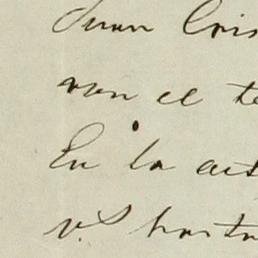 Juan Cris
ven el te
En la act
v.S hasta